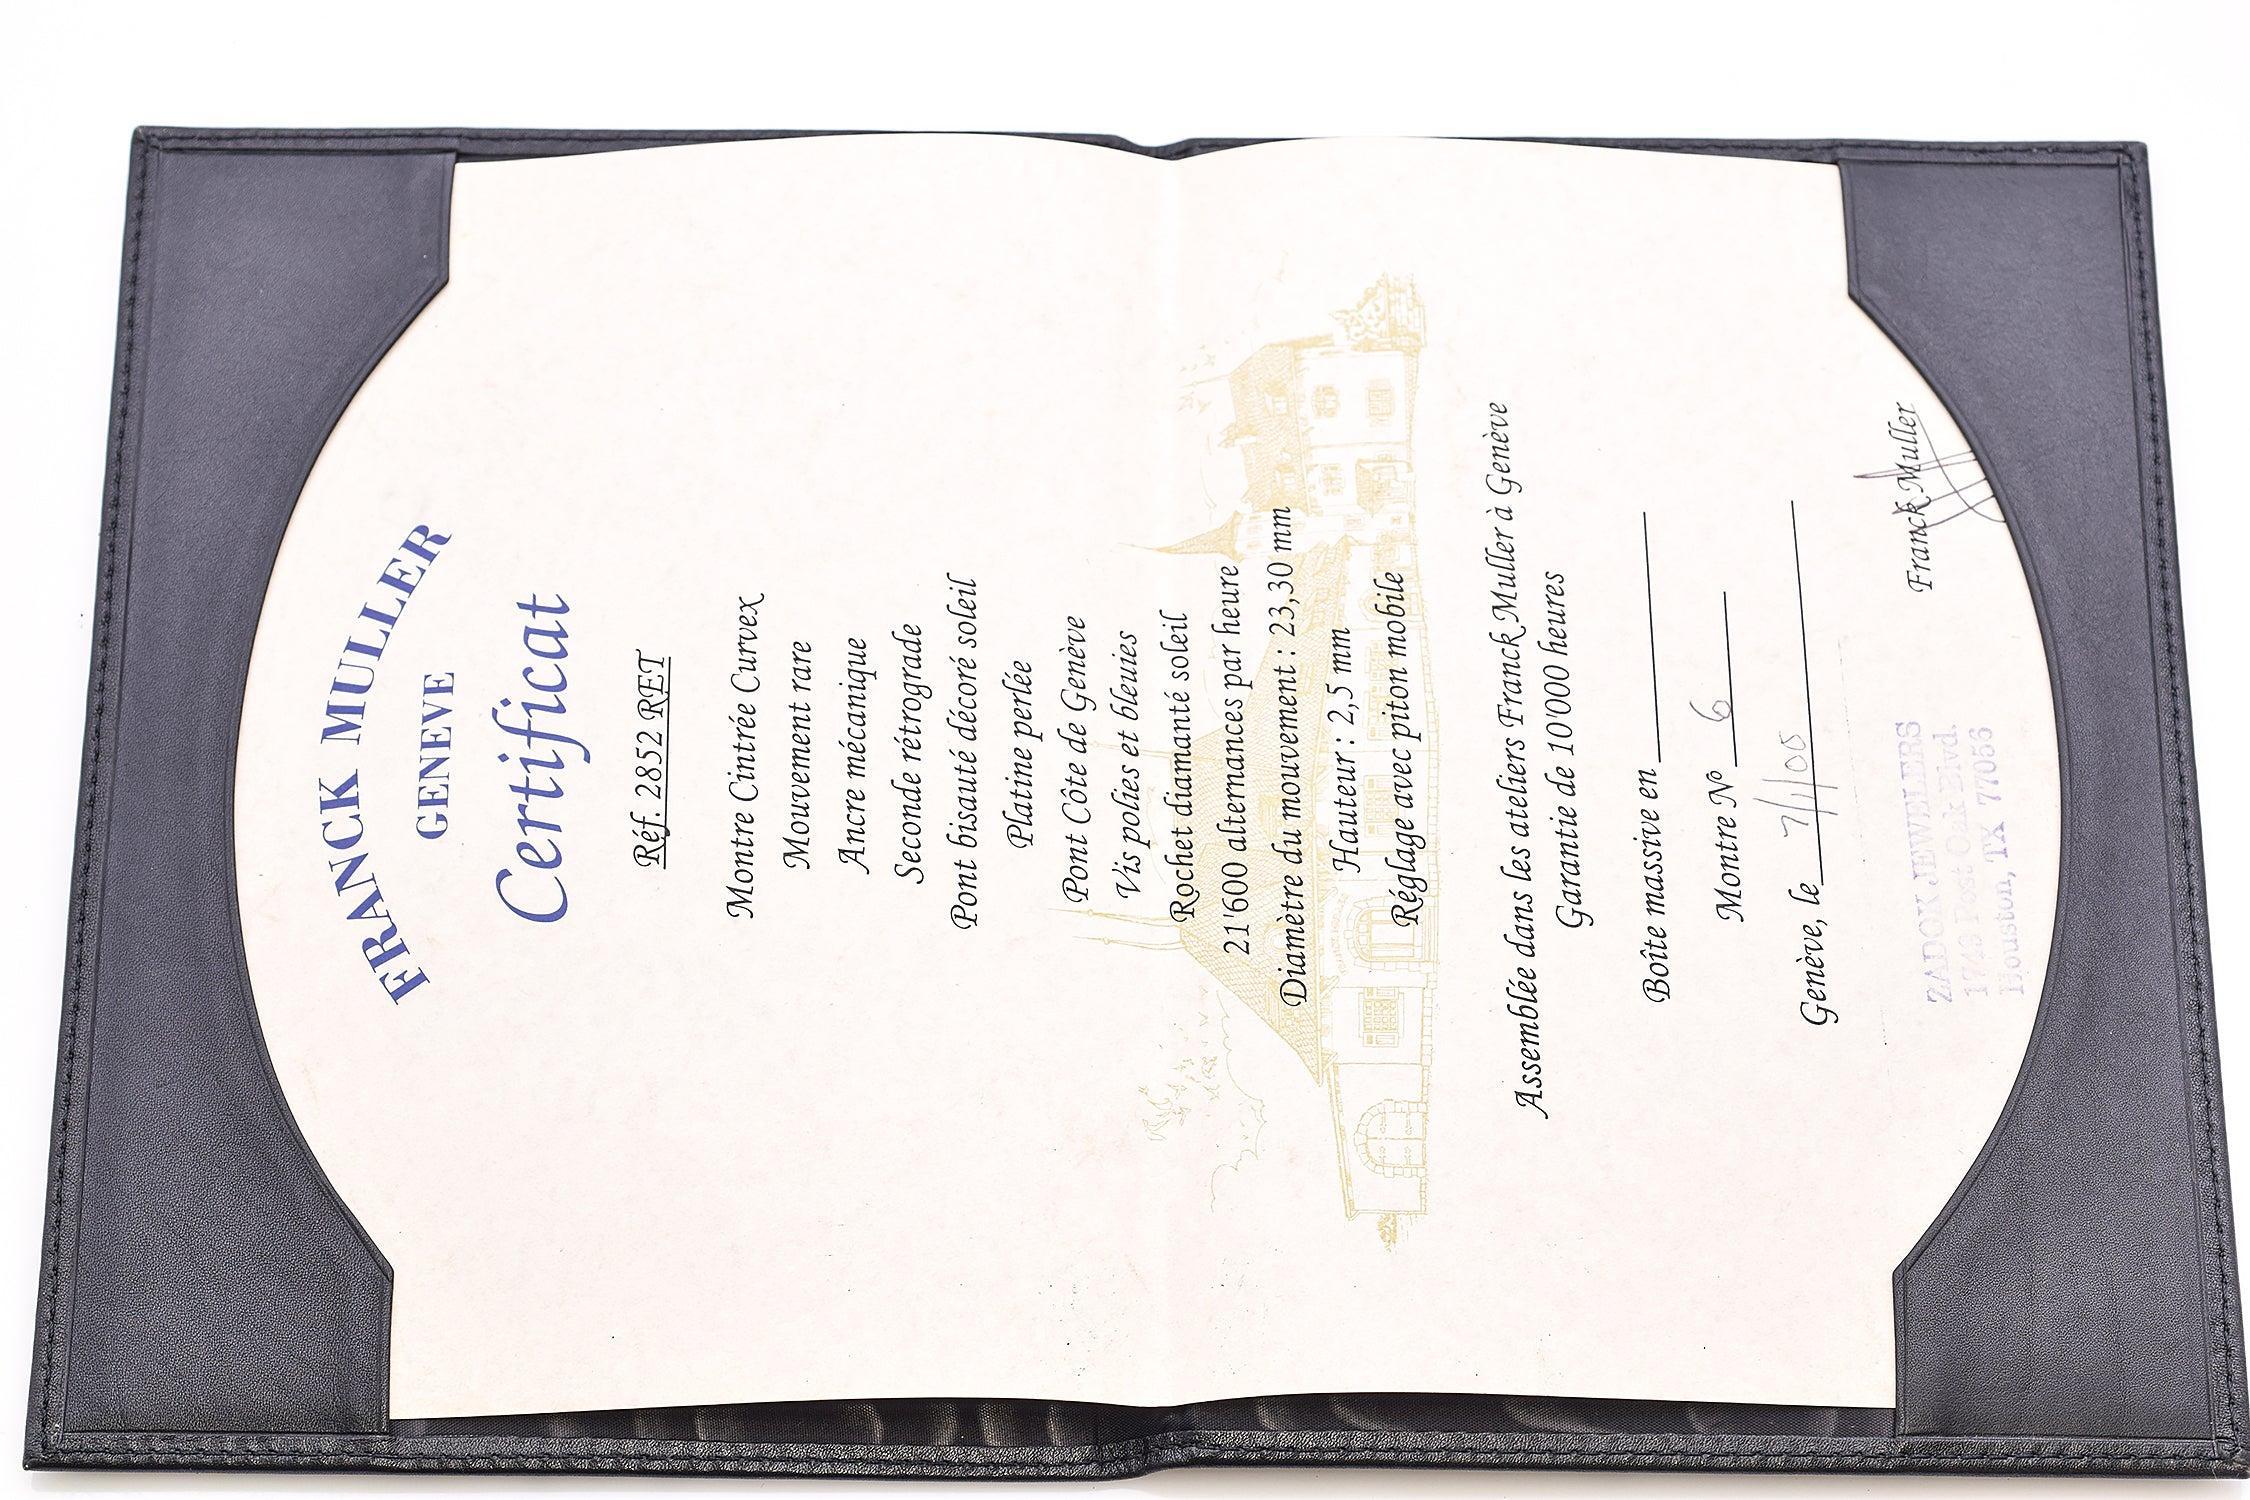 FRANCK MULLER
GENEVE
Certificat
Réf. 2852 RET
Montre Cintrée Curvex
Mouvement rare
Ancre mécanique
Seconde rétrograde
Pont bisauté décoré soleil
Platine perlée
Pont Côte de Genève
Vis polies et bleuies
Rochet diamanté soleil
21'600 alternances par heure
Diamètre du mouvement : 23,30 mm
Hauteur : 2,5 mm
Réglage avec piton mobile
Assemblée dans les ateliers Franck Muller à Genève
Garantie de 10'000 heures
Boîte massive en
Montre N° 6
Genève, le 7/1/00
Franck Muller
ZADOK JEWELERS
1749 Post Oak Blvd.
Houston, TX 77056